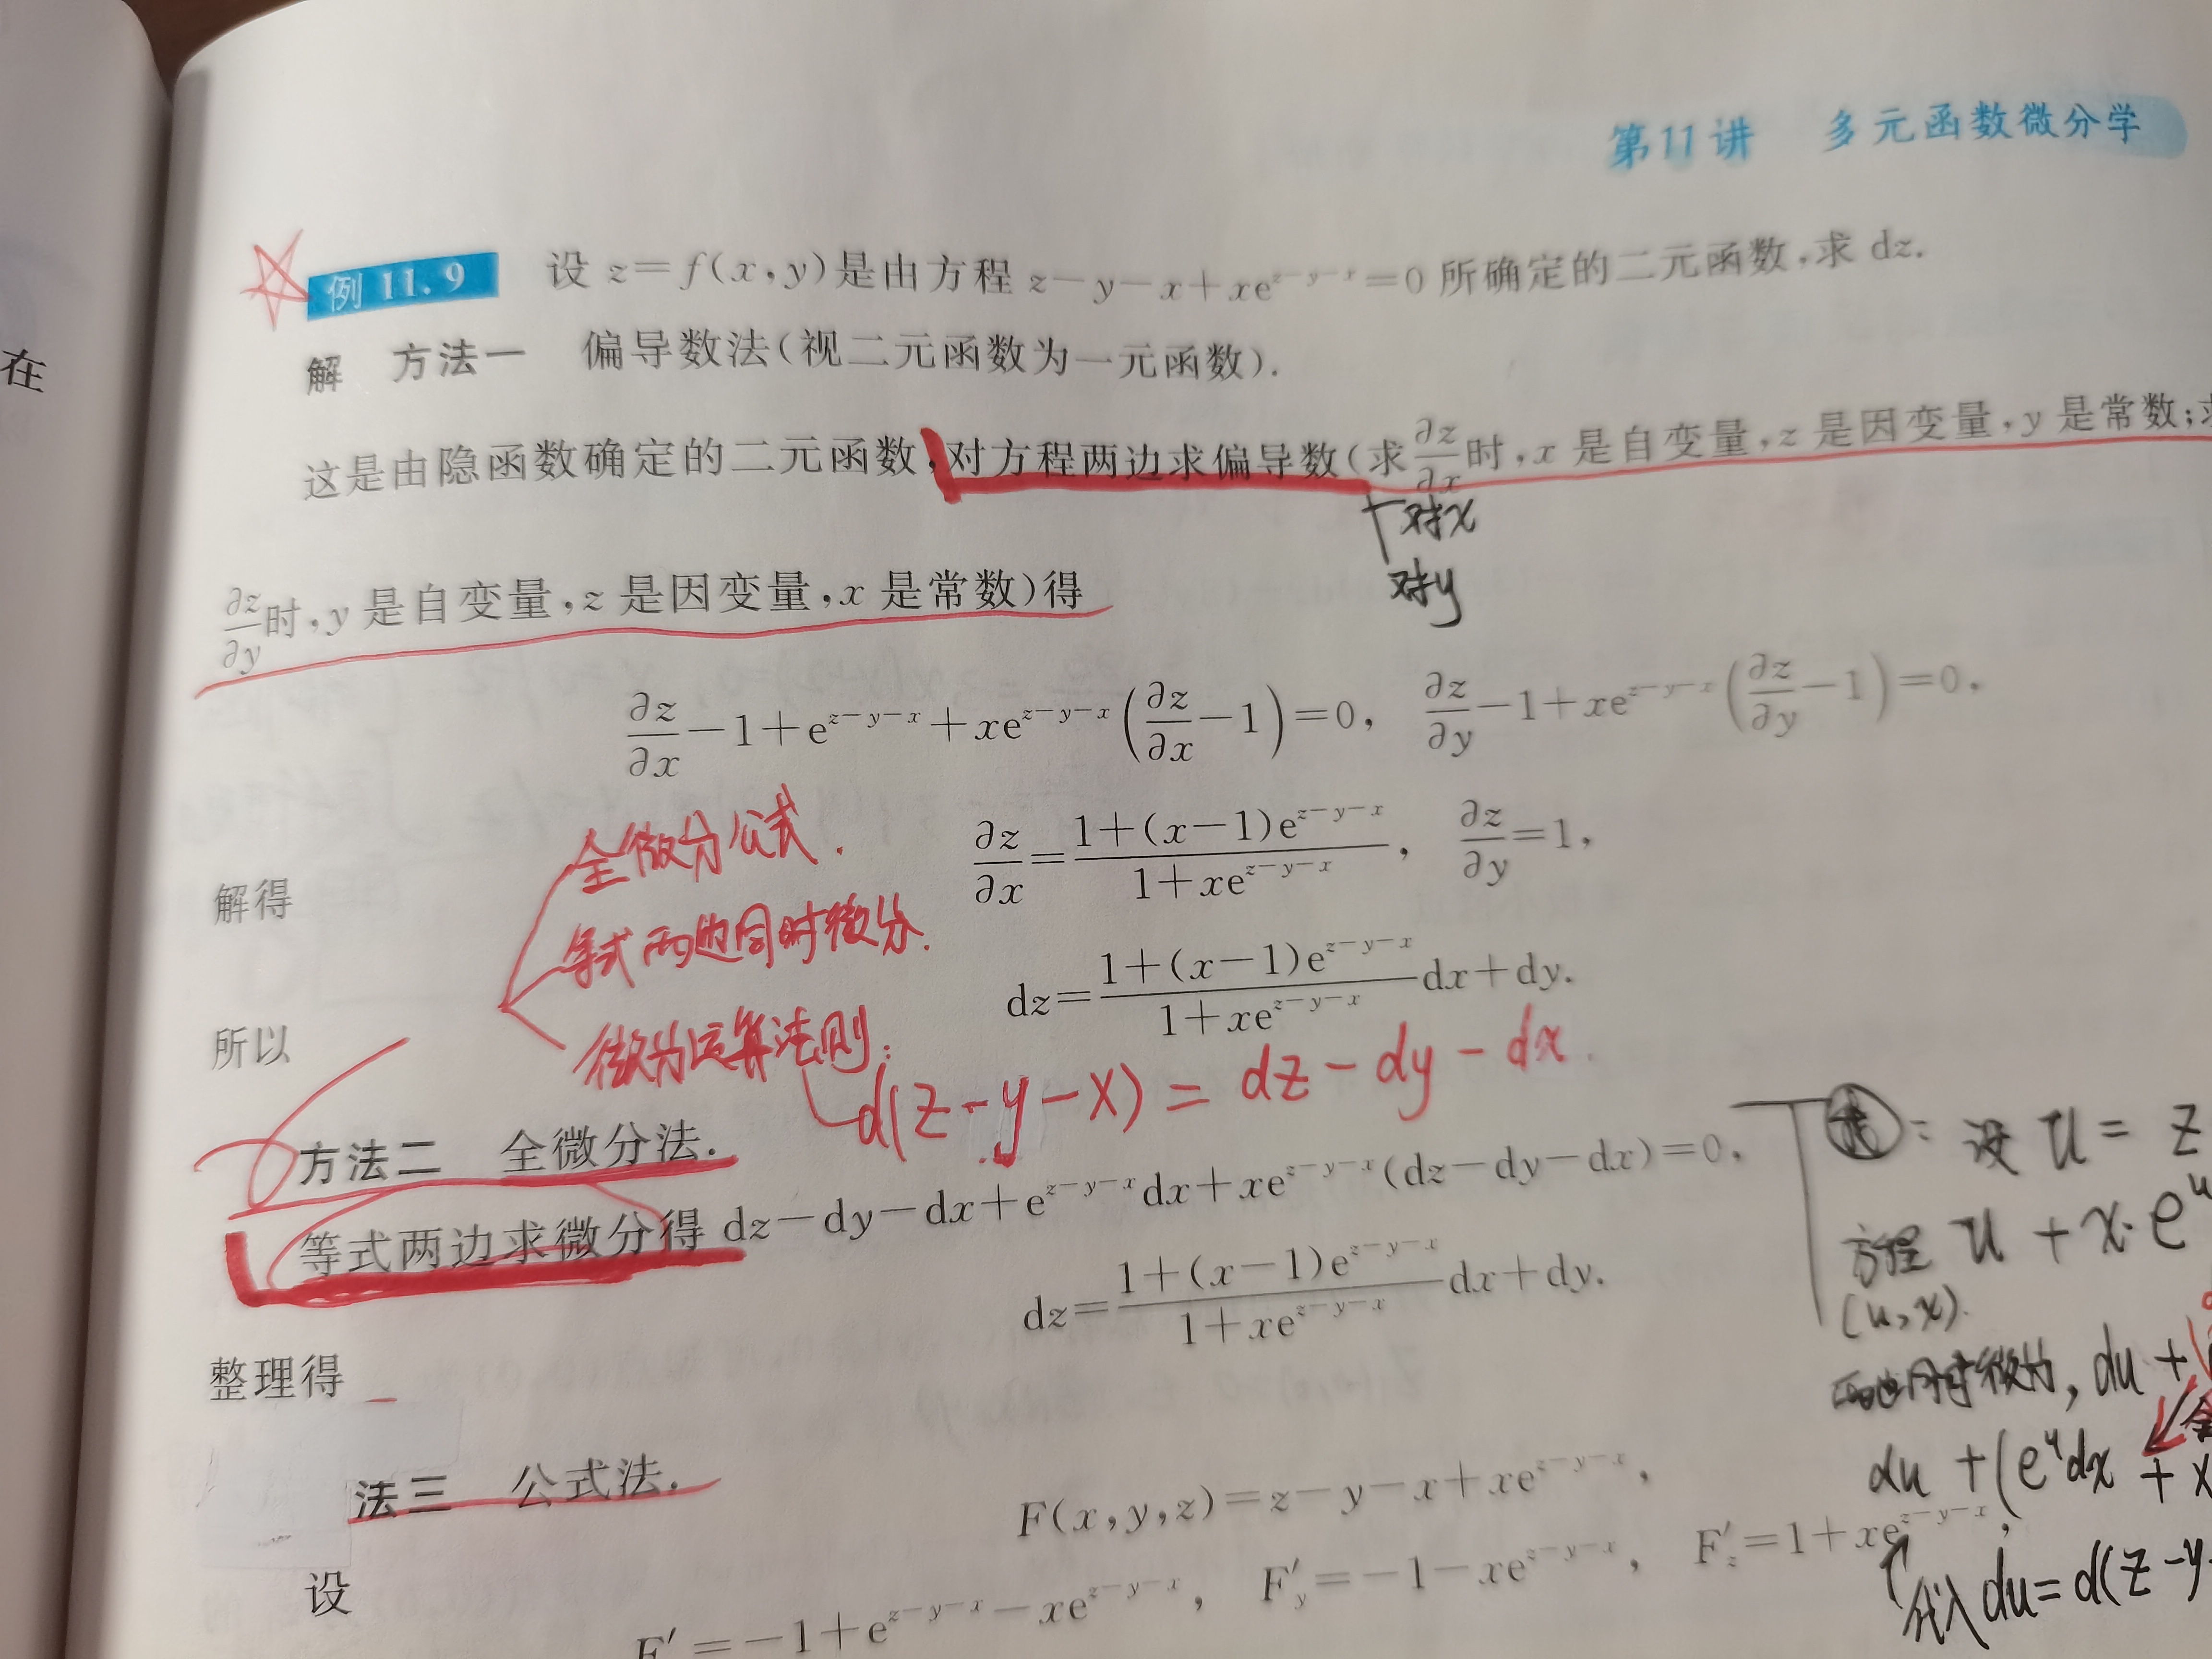 在
第11讲 多元函数微分学
例 11.9 设 z=f(x,y)是由方程 z-y-x+xe^{z-y-x}=0 所确定的二元函数,求 dz.
解 方法一 偏导数法(视二元函数为一元函数).
这是由隐函数确定的二元函数,对方程两边求偏导数(求∂z/∂x时,x 是自变量,z 是因变量,y 是常数;
对x
对y
∂z/∂y时,y 是自变量,z 是因变量,x 是常数)得
∂z/∂x-1+e^{z-y-x}+xe^{z-y-x}(∂z/∂x-1)=0, ∂z/∂y-1+xe^{z-y-x}(∂z/∂y-1)=0,
全微分公式.
解得 ∂z/∂x=(1+(x-1)e^{z-y-x})/(1+xe^{z-y-x}), ∂z/∂y=1,
等式两边同时微分.
所以 dz=(1+(x-1)e^{z-y-x})/(1+xe^{z-y-x})dx+dy.
微分运算法则:
d(z-y-x)=dz-dy-dx.
方法二 全微分法.
等式两边求微分得 dz-dy-dx+e^{z-y-x}dx+xe^{z-y-x}(dz-dy-dx)=0,
整理得 dz=(1+(x-1)e^{z-y-x})/(1+xe^{z-y-x})dx+dy.
: 设 u= z
方程 u + x·e^u
(u,x).
两边同时微分, du +
du +(e^u dx + x
代入 du=d(z-y
法三 公式法.
设 F(x,y,z)=z-y-x+xe^{z-y-x},
F′=-1+e^{z-y-x}-xe^{z-y-x}, F′_y=-1-xe^{z-y-x}, F′_z=1+xe^{z-y-x},